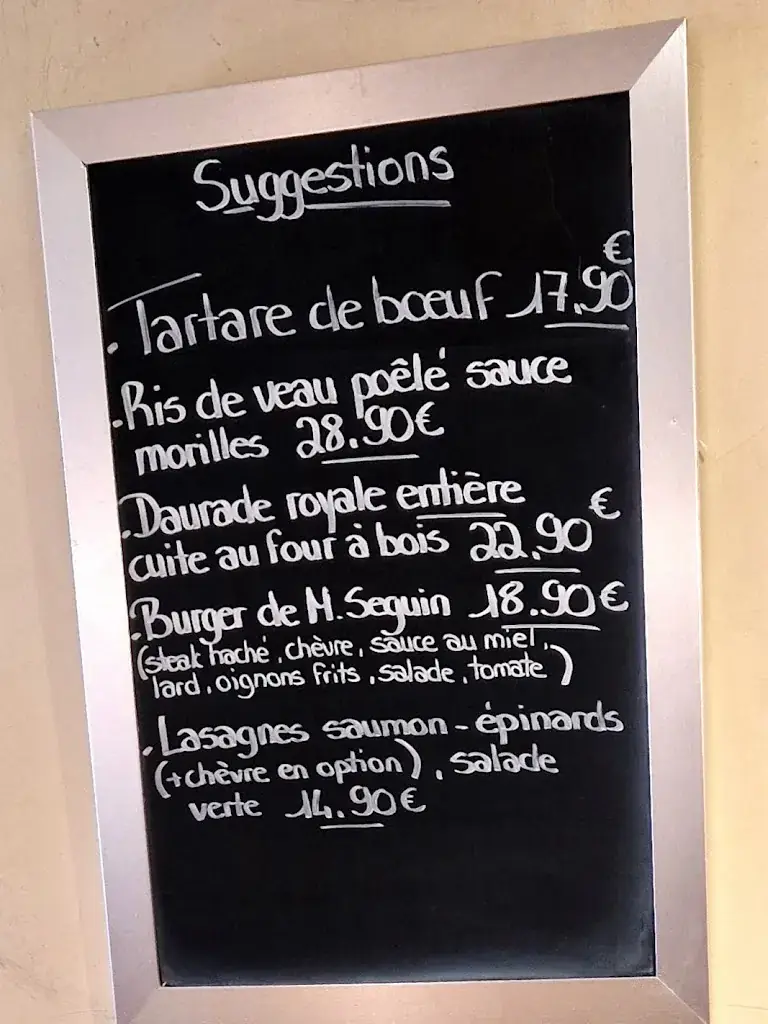 Suggestions
. Tartare de bœuf 17,90€
. Ris de veau poêlé sauce
morilles 28.90€
. Daurade royale entière
cuite au four à bois 22,90€
. Burger de M. Seguin 18.90€
(steak haché, chèvre, sauce au miel,
lard, oignons frits, salade, tomate)
. Lasagnes saumon - épinards
(+chèvre en option), salade
verte 14.90€